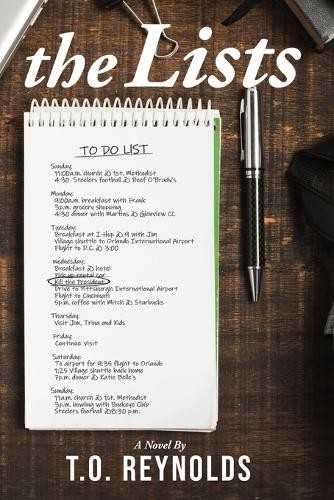 the Lists
TO DO LIST
Sunday:
11:00a.m. church @ 1st. Methodist
4:30 Steelers football @ Beef O'Brady's
Monday:
9:00a.m. breakfast with Frank
3p.m. grocery shopping
4:30 dinner with Martins @ Glenview CC
Tuesday:
Breakfast at I-Hop @ 9 with Jim
Village shuttle to Orlando International Airport
Flight to D.C. @ 3:00
Wednesday:
Breakfast @ hotel
Pick up rental car
Kill the President
Drive to Pittsburgh International Airport
Flight to Cincinnati
5p.m. coffee with Mitch @ Starbucks
Thursday:
Visit Jim, Trina and Kids
Friday:
Continue Visit
Saturday:
To airport for 9:35 flight to Orlando
1:25 Village shuttle back home
7p.m. dinner @ Katie Belle's
Sunday:
11a.m. church @ 1st. Methodist
3p.m. bowling with Buckeye Club
Steelers football @8:30 p.m.
A Novel By
T.O. REYNOLDS